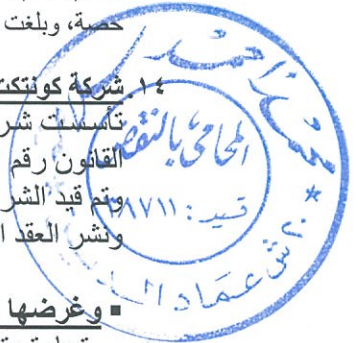 حصة، وبلغت
١٤. شركة كونتكت
تأسست شر
القانون رقم
وتم قيد الشر
ونشر العقد ا
▪ وغرضها
محمد أحمد
المحامى بالنقض
قيد: ٨٧١١
ش عماد الد